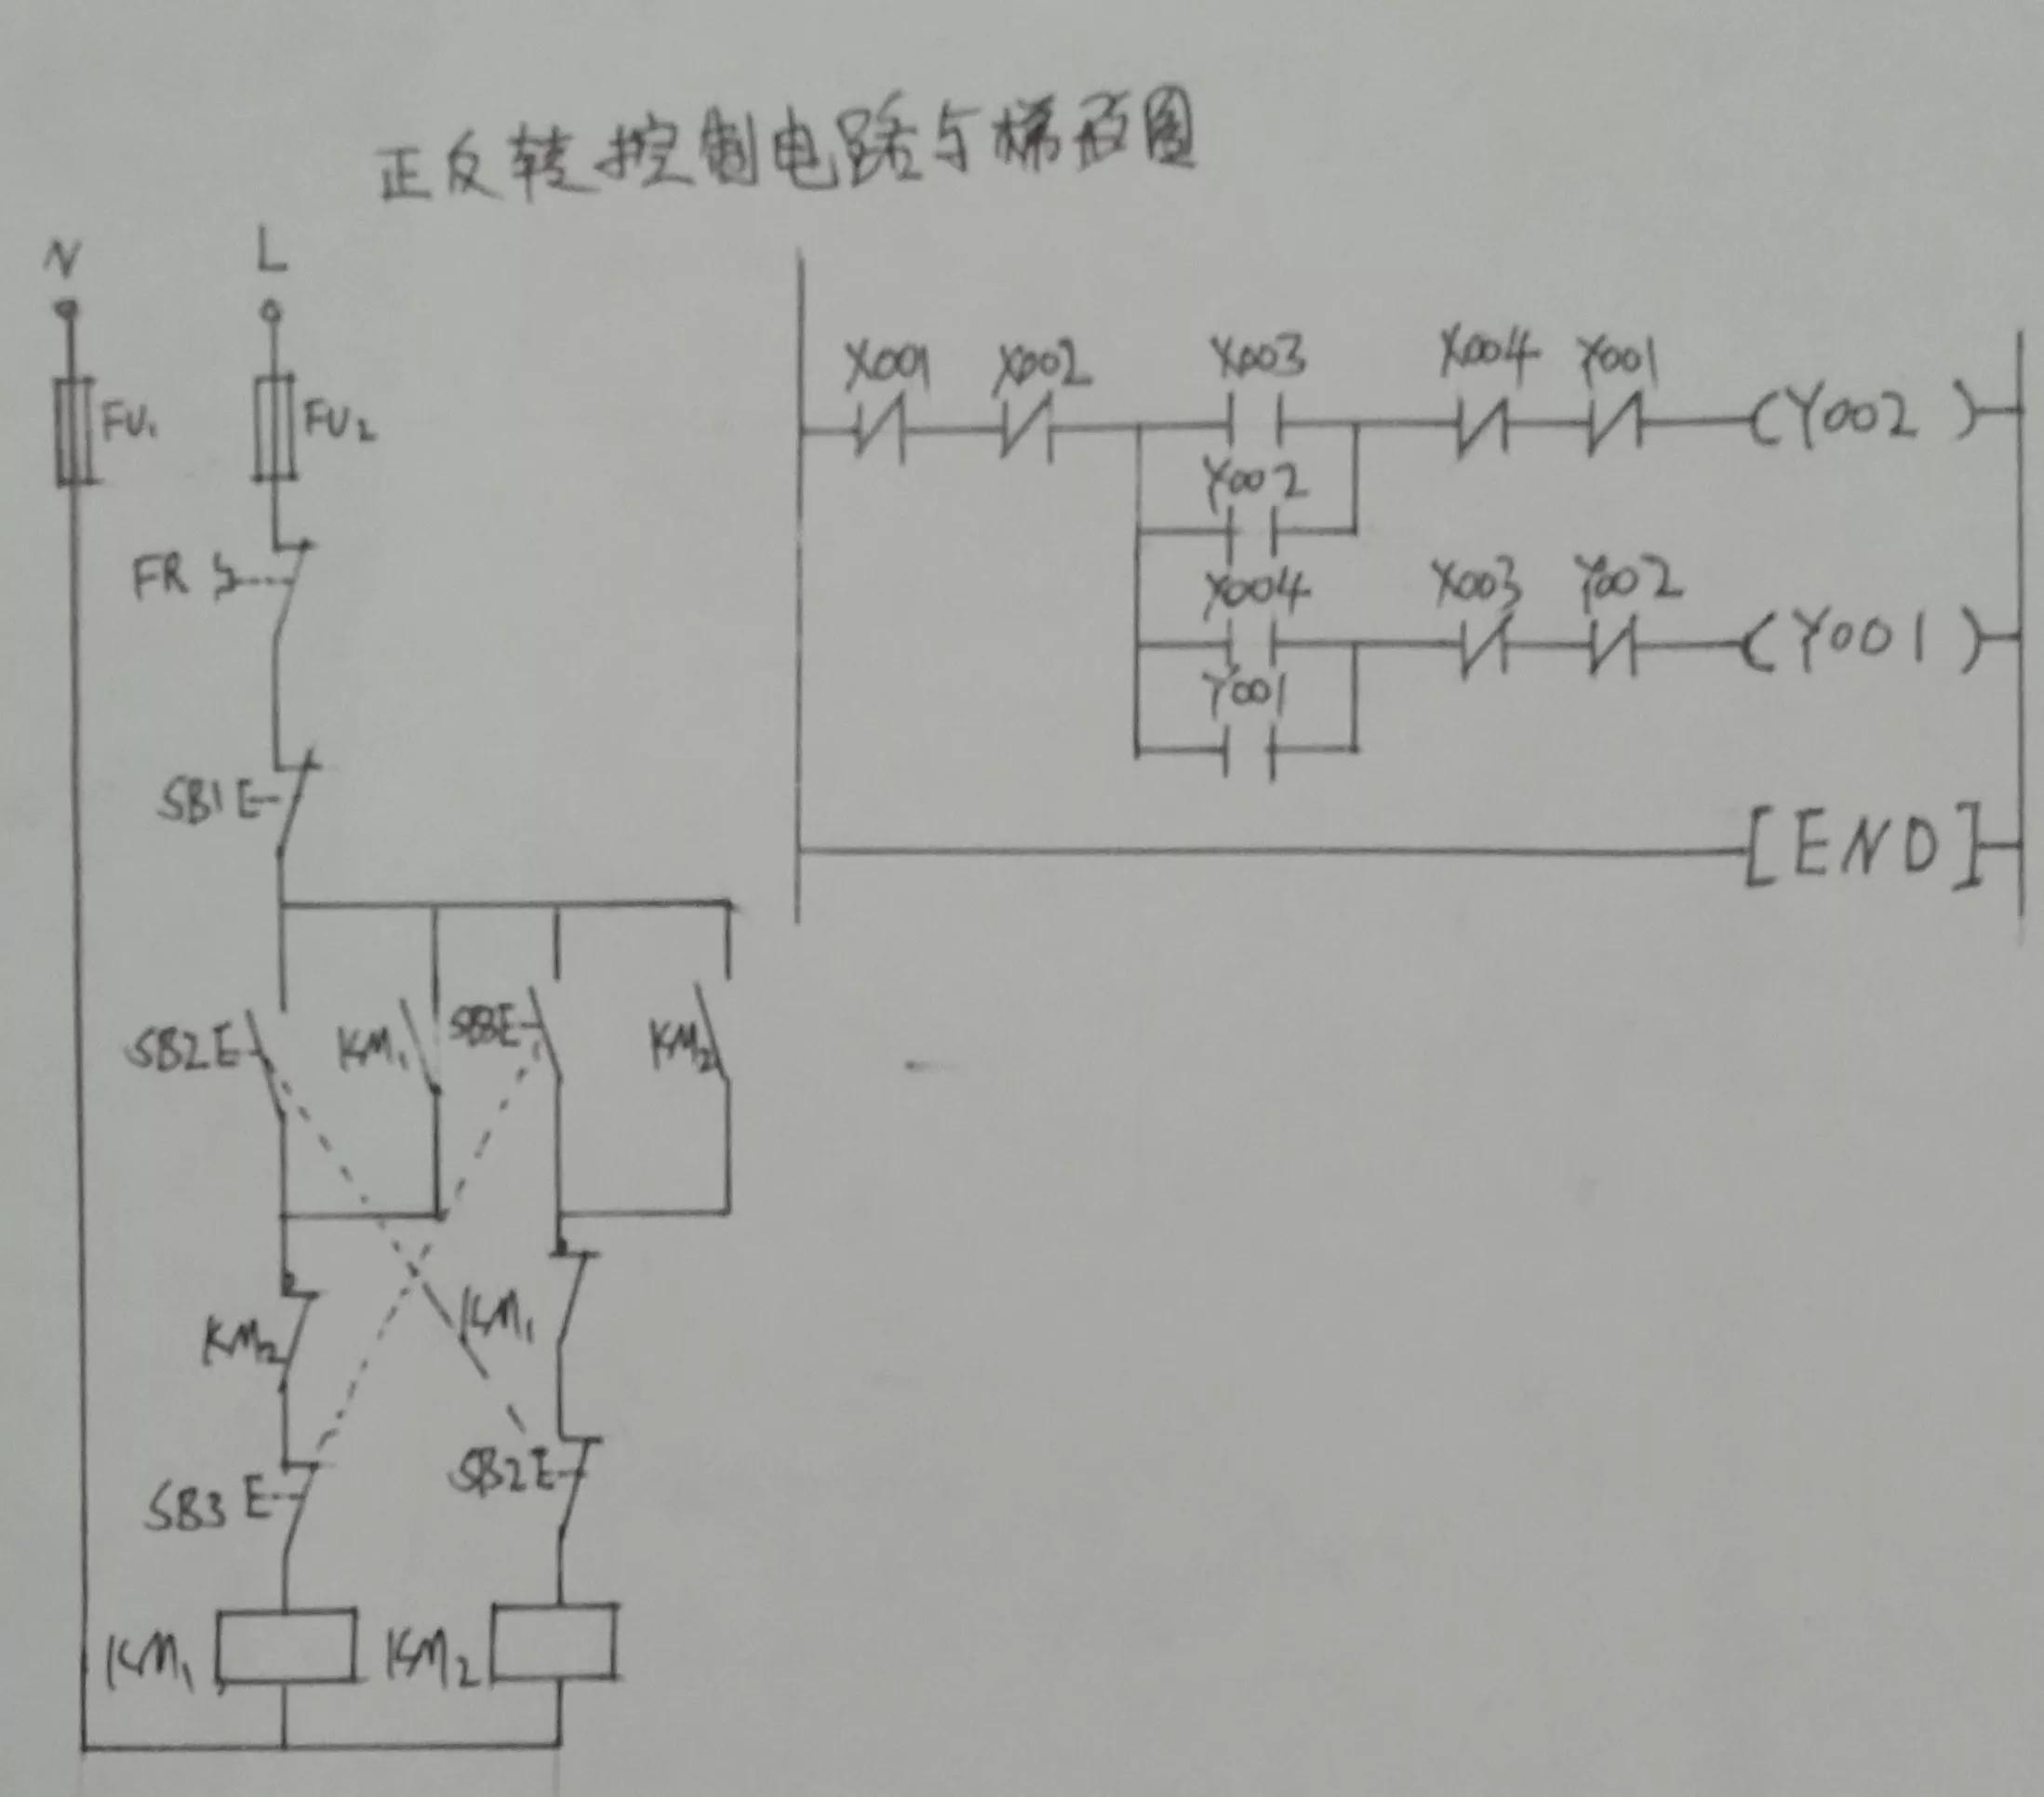 正反转控制电路与梯形图
N L
FU1 FU2
FR
SB1 E
SB2 E KM1 SB3 E KM2
KM2 KM1
SB3 E SB2 E
KM1 KM2
X001 X002 X003 X004 Y001 (Y002)
Y002
X004 X003 Y002 (Y001)
Y001
[END]